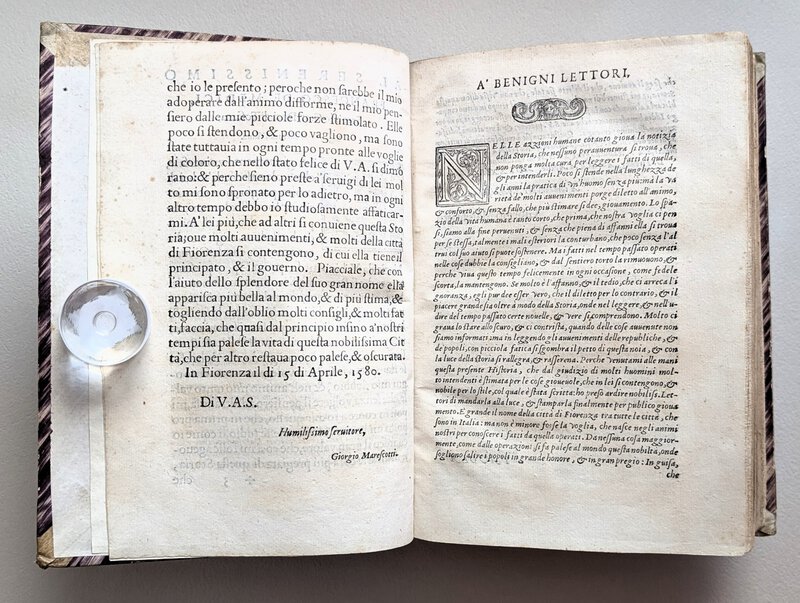 che io le presento; peroche non sarebbe il mio
adoperare dall'animo difforme, ne il mio pen-
siero dalle mie picciole forze stimolato. Elle
poco si stendono, & poco vagliono, ma sono
state tuttauia in ogni tempo pronte alle voglie
di coloro, che nello stato felice di V.A. si dimo
rano: & perche sieno preste a' seruigi de lei mol
to mi sono spronato per lo adietro, ma in ogni
altro tempo debbo io studiosamente affaticar-
mi. A' lei più, che ad altri si conuiene questa Sto
ria; oue molti auuenimenti, & molti della città
di Fiorenza si contengono, di cui ella tiene il
principato, & il gouerno. Piacciale, che con
l'aiuto dello splendore del suo gran nome ella
apparisca più bella al mondo, & di più stima, &
togliendo dall'oblio molti consigli, & molti fat
ti, faccia, che quasi dal principio insino a' nostri
tempi sia palese la vita di questa nobilissima Cit
tà, che per altro restaua poco palese, & oscurata.
In Fiorenza il dì 15 di Aprile, 1580.
Di V.A.S.
Humilissimo seruitore,
Giorgio Marescotti.
A' BENIGNI LETTORI.
NELLE azzioni humane cotanto gioua la notizia
della Storia, che nessuno perauuentura si troua, che
non ponga molta cura per leggere i fatti di quella,
& per intenderli. Poco si stende nella lunghezza de
gli anni la pratica di vn huomo senza più: ma la va
rietà de' molti auuenimenti porge diletto all'animo,
& conforto, & senza fallo, che più stimare si dee, giouamento. Lo spa-
zio della vita humana è tanto corto, che prima, che nostra voglia ci pen
si, siamo alla fine peruenuti, & senza che piena di affanni ella si troua
per se stessa, talmente i mali esteriori la conturbano, che poco senza l'al
trui col suo aiuto si puote sostenere. Ma i fatti nel tempo passato operati
nelle cose dubbie la consigliano, & dal sentiero torto la rimuouono, &
perche viua questo tempo felicemente in ogni occasione, come fedele
scorta, la mantengono. Se molto è l'affanno, & il tedio, che ci arreca l'i
gnoranza, egli pur dee esser vero, che il diletto per lo contrario, & il
piacere grande sia oltre a modo della Storia, onde nelle nostre menti l'v
dire del tempo passato certe nouelle, & vere si comprendono. Molto ci
graua lo stare allo scuro, & ci contrista, quando delle cose auuenute non
siamo informati, ma in leggendo gli auuenimenti delle republiche, &
de popoli, con picciola fatica si sgombra il petto di questa noia, & con
la luce della Storia si rallegra, & rasserena. Perche venutami alle mani
questa presente Historia, che dal giudizio di molti huomini mol-
to intendenti è stimata per le cose gioueuole, che in lei si contengono, &
nobile per lo stile, col quale è stata scritta: ho preso ardire nobilissi. Let-
tori di mandarla alla luce, & stamparla finalmente per publico gioua
mento. E grande il nome della città di Fiorenza tra tutte le città, che
sono in Italia: ma non è minore forse la voglia, che nasce negli animi
nostri per conoscere i fatti da quella operati. Da nessuna cosa maggior-
mente, come dalle operazioni si fa palese al mondo questa nobiltà, onde
sogliono salire i popoli in grande honore, & in gran pregio: In guisa,
che